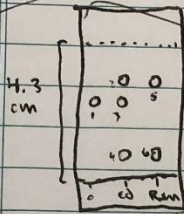 4.3
cm
2 5
1 3
4 6
o co Rxn